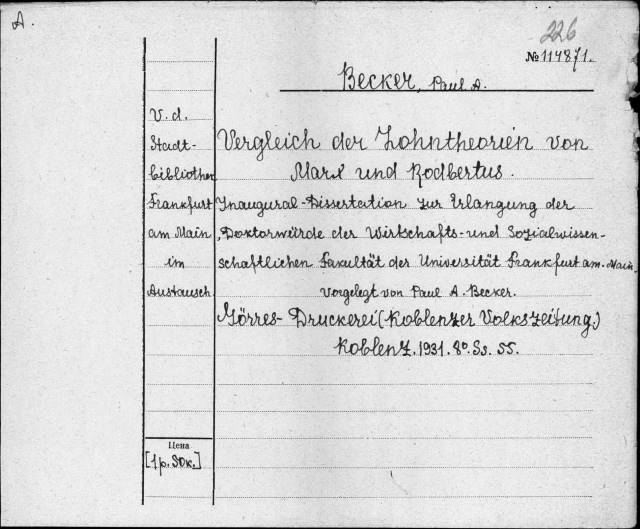 A.
226
№ 114871.
Becker, Paul A.
V. d.
Stadt-
bibliothek
Frankfurt
am Main
im
Austausch
Vergleich der Lohntheorien von
Marx und Rodbertus.
Inaugural-Dissertation zur Erlangung der
Doktorwürde der Wirtschafts- und Sozialwissen-
schaftlichen Fakultät der Universität Frankfurt am Main
vorgelegt von Paul A. Becker.
Görres-Druckerei (Koblenzer Volkszeitung.)
Koblenz. 1931. 8º. Ss. 55.
Цена
[1 р. 50 к.]